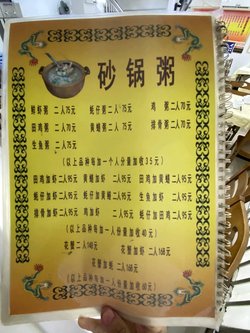 砂锅粥
鲜虾粥 二人75元 蚝仔粥二人75元 鸡 粥二人70元
田鸡粥 二人70元 黄鳝粥二人75元 排骨粥二人70元
生鱼粥 二人75元
(以上品种每加一个人份量加收35元)
田鸡加虾 二人95元 黄鳝加虾 二人95元 田鸡加黄鳝二人95元
蚝仔加虾 二人95元 蚝仔加黄鳝二人95元 生鱼加虾 二人95元
排骨加虾 二人95元 鸡加虾 二人95元 蚝仔加田鸡二人95元
(以上品种每加一人份量加收40元)
花蟹二人140元 花蟹加虾 二人168元
花蟹加蚝 二人168元
(以上品种每加一人份量加收60元)